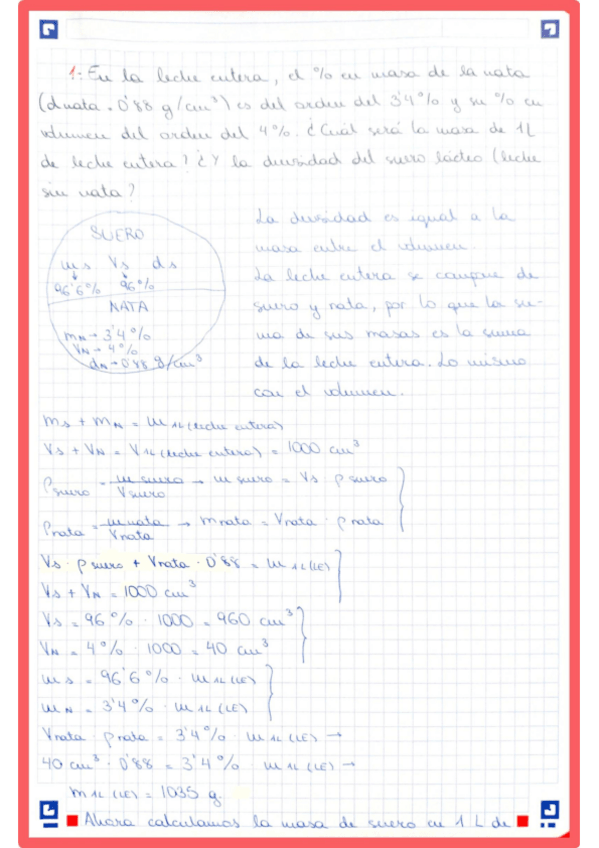 1.- En la leche entera, el % en masa de la nata
(dnata = 0'88 g/cm³) es del orden del 3'4% y su % en
volumen del orden del 4%. ¿Cuál será la masa de 1L
de leche entera? ¿Y la densidad del suero lácteo (leche
sin nata?
SUERO
ms Vs ds
96'6% 96%
NATA
mN → 3'4%
VN → 4%
dN → 0'88 g/cm³
La densidad es igual a la
masa entre el volumen.
La leche entera se compone de
suero y nata, por lo que la su-
ma de sus masas es la suma
de la leche entera. Lo mismo
con el volumen.
ms + mN = m 1L (leche entera)
Vs + VN = V 1L (leche entera) = 1000 cm³
ρsuero = m suero / Vsuero → m suero = Vs · ρ suero
ρnata = m nata / Vnata → mnata = Vnata · ρnata
Vs · ρ suero + Vnata · 0'88 = m 1L (LE)
Vs + VN = 1000 cm³
Vs = 96% · 1000 = 960 cm³
VN = 4% · 1000 = 40 cm³
ms = 96'6% · m 1L (LE)
mN = 3'4% · m 1L (LE)
Vnata · ρnata = 3'4% · m 1L (LE) →
40 cm³ · 0'88 = 3'4% · m 1L (LE) →
m 1L (LE) = 1035 g.
Ahora calculamos la masa de suero en 1 L de